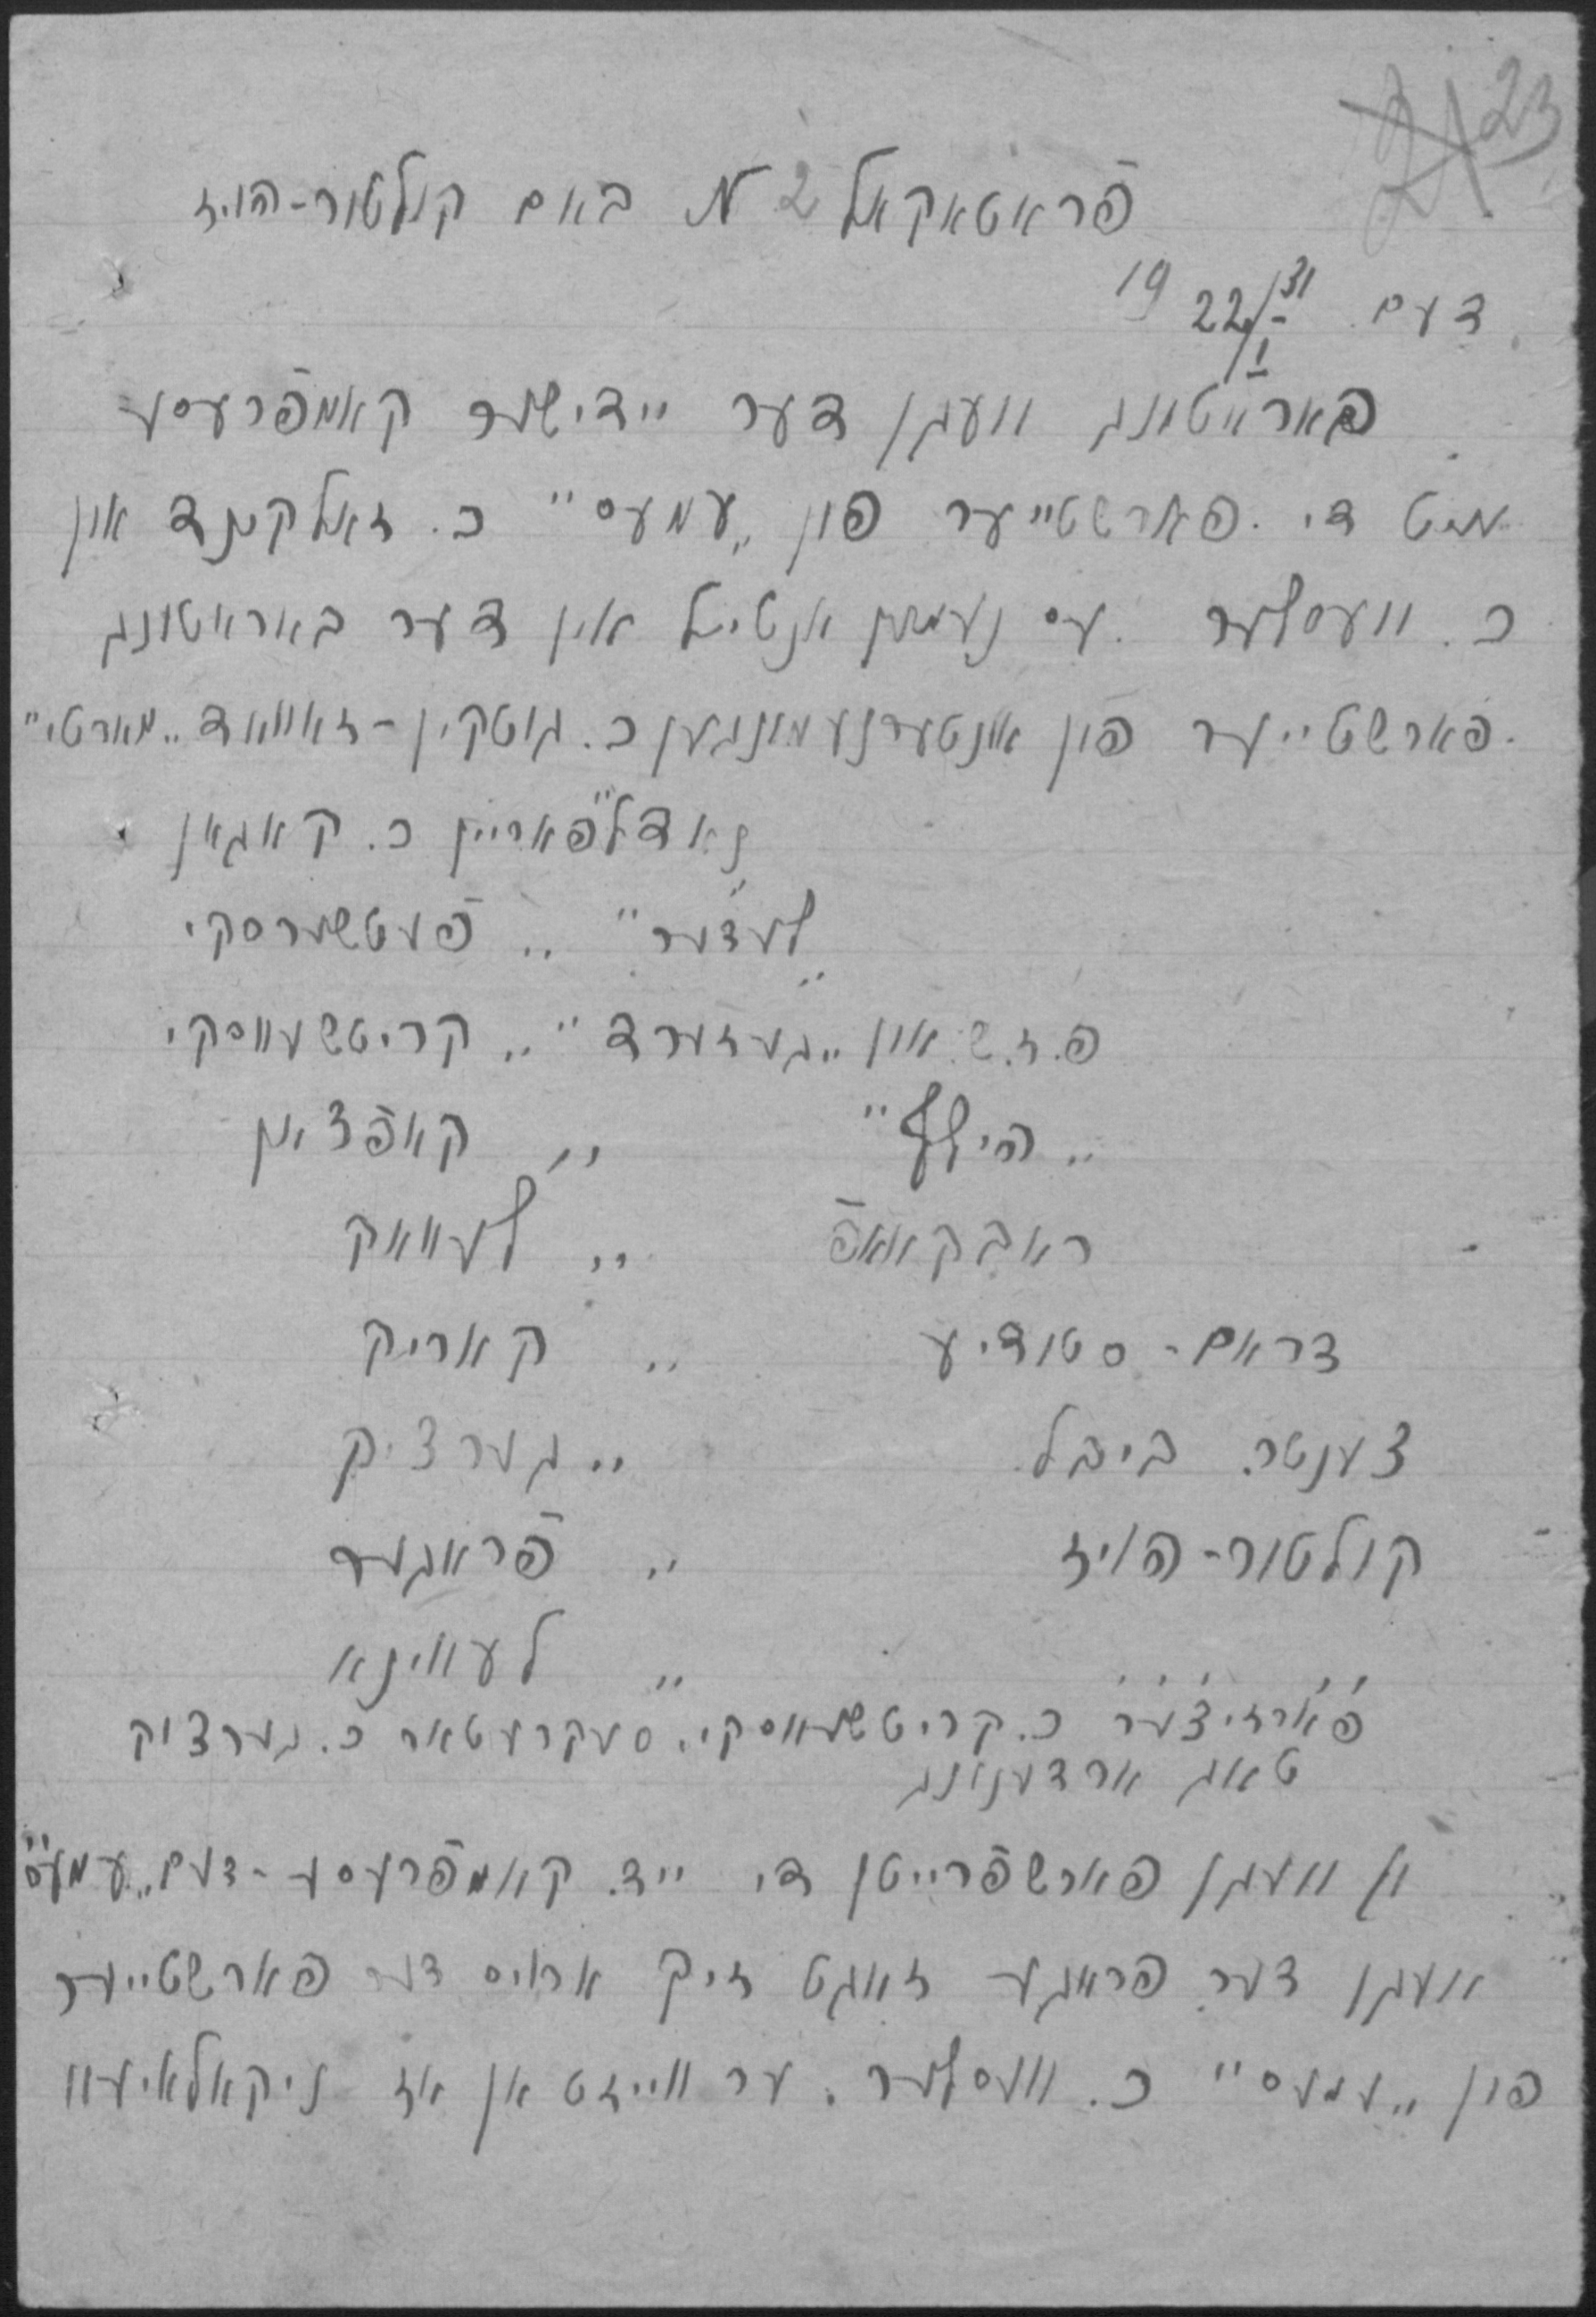 23
פּראטאקאל № 2 באם קולטור-הויז
דעם 22/I 1931
באראטונג וועגן דער יידישער קאמפּרעסע
מיט די פארשטייער פון „עמעס" כ. זאלקינד און
כ. וועסלער. עס נעמען אנטייל אין דער באראטונג
פארשטייער פון אונטערנעמונגען כ. גוטקין - זאוואד „מארטי"
נאדל פאריין כ. קאגאן
לעדער" „ פּעטשערסקי
פ. ז. ש. און „געזערד" „ קריטשעווסקי
„הילף" „ קאפּצאן
ראבקאאפּ „ לעוואק
דראם-סטודיע „ קאריק
צענטר. ביבל. „ גערציק
קולטור-הויז „ פּראגער
„ לעווינא
פארזיצער כ. קריטשעווסקי. סעקרעטאר כ. גערציק
טאג ארדענונג
I) וועגן פארשפּרייטן די ייד. קאמפּרעסע - דעם „עמעס"
וועגן דער פראגע זאגט זיך ארויס דער פארשטייער
פון „עמעס" כ. וועסלער. ער ווייזט אן אז ניקאלאיעוו